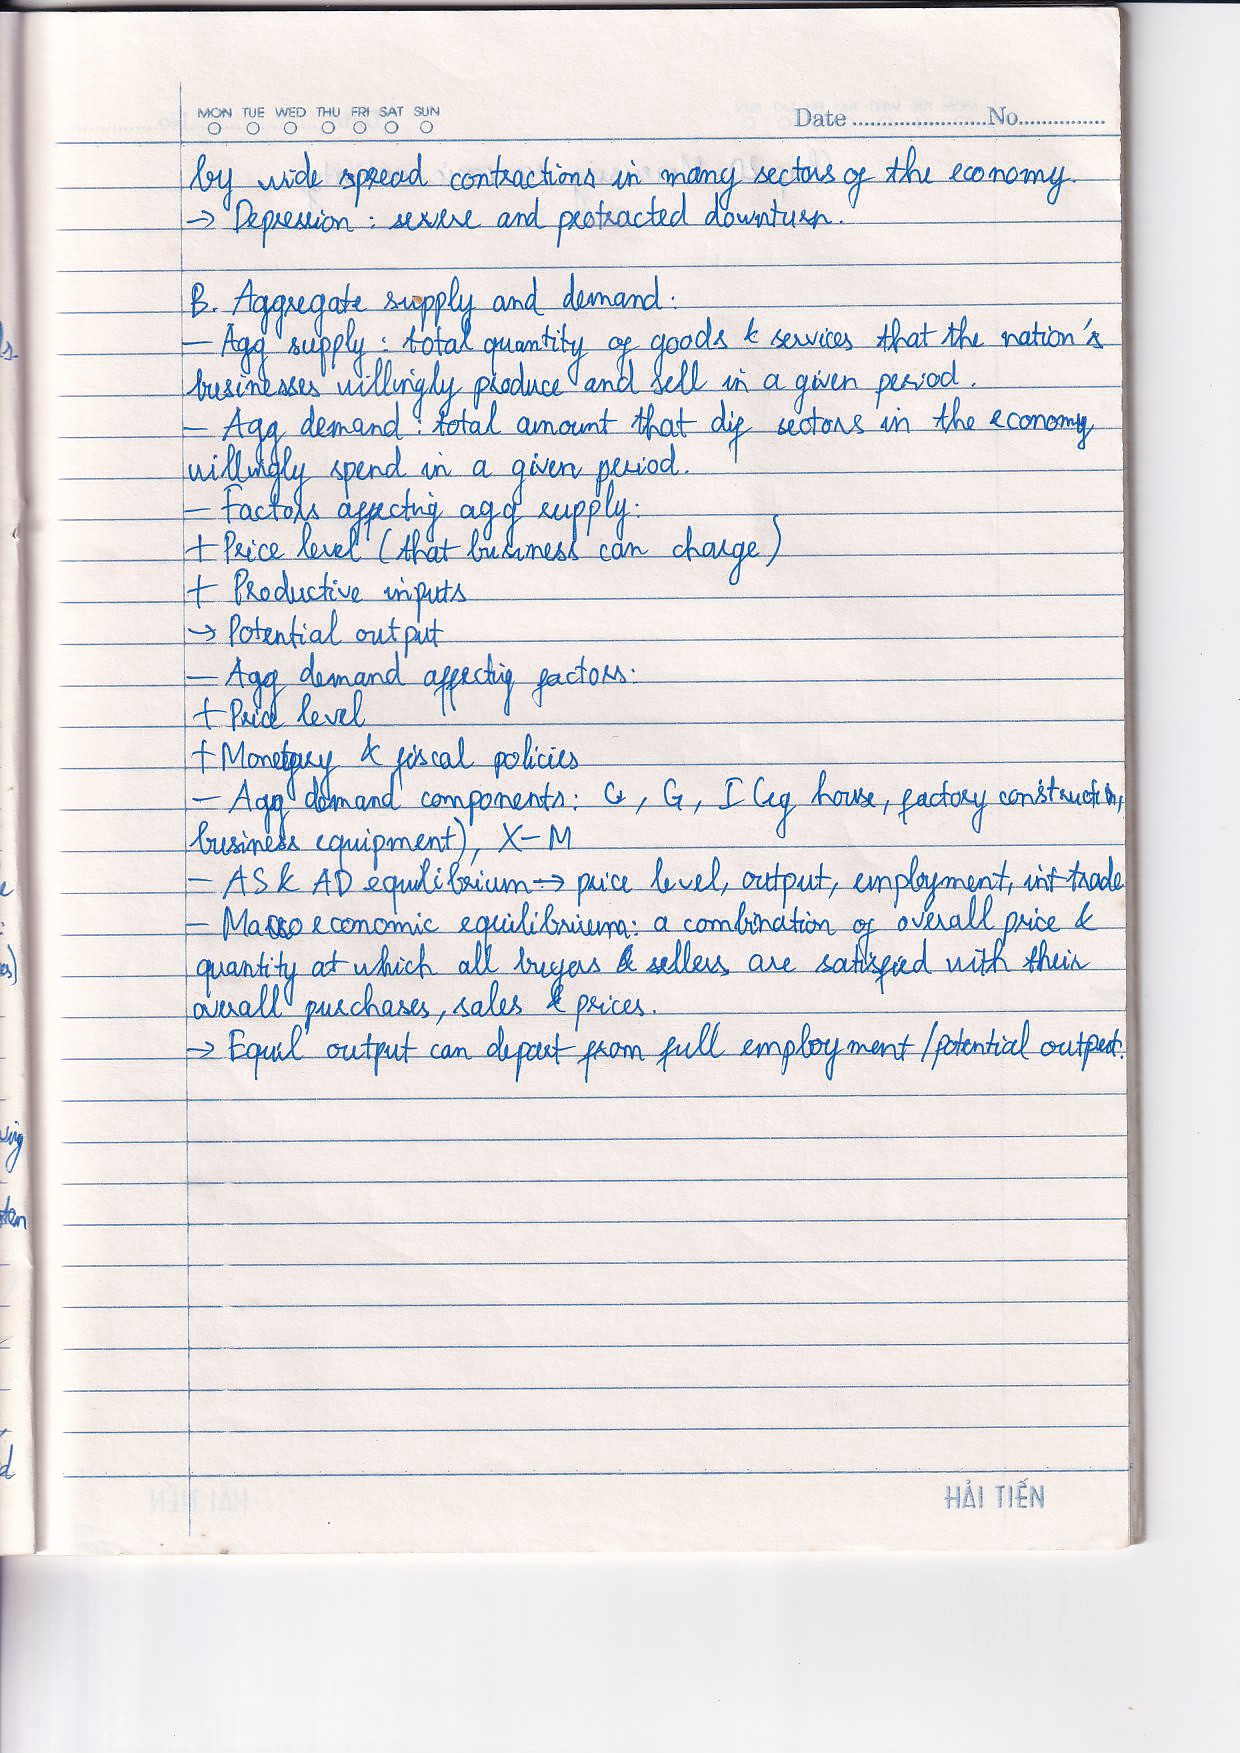 MON TUE WED THU FRI SAT SUN
Date ......................No...............
by wide spread contractions in many sectors of the economy.
→ Depression : severe and protracted downturn.
B. Aggregate supply and demand.
- Agg supply : total quantity of goods & services that the nation's
businesses willingly produce and sell in a given period.
- Agg demand : total amount that dif sectors in the economy
willingly spend in a given period.
- Factors affecting agg supply:
+ Price level (that business can charge)
+ Productive inputs
→ Potential output
- Agg demand affecting factors:
+ Price level
+ Monetary & fiscal policies
- Agg demand components: G, I (eg house, factory construction,
business equipment), X-M
- AS & AD equilibrium → price level, output, employment, int trade
- Macro economic equilibrium: a combination of overall price &
quantity at which all buyers & sellers are satisfied with their
overall purchases, sales & prices.
→ Equil output can depart from full employment / potential output.
HẢI TIẾN